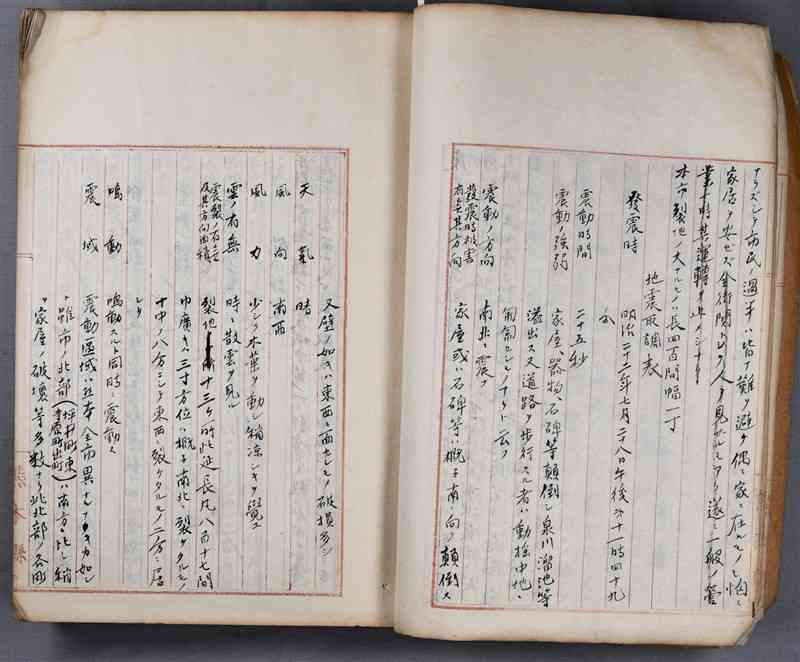 ナラズシテ市民ノ過半ハ皆ナ難ヲ避ケ偶々家ニ在ルモノモ悩ミ
家居ヲ安セズ全街閴トシテ人ヲ見ザルニ至リ遂ニ一般ノ営
業ト時其運轉ヲ止メシナリ
本市裂地ノ大ナルモノハ長四百間幅一寸
地震取調表
發震時
明治二十二年七月二十八日午後第十一時四十九
分
震動時間
二十五秒
震動ノ強弱
家屋器物、石碑等顛倒シ泉川溜池等
溢出ス又道路ヲ歩行スル者ハ動揺中地ニ
匍匐セシモノナリト云フ
震動ノ方向
南北ニ震フ
發震時被害
有無其方向
家屋或ハ石碑等ハ概子南ニ向ヒ顛倒ス
又壁ノ如キハ東西ニ面セシモノ破損多シ
天氣
晴
風向
南西
風力
少シク木葉ヲ動シ稍凉シキヲ覺ユ
雲ノ有無
時々散雲ヲ見ル
震裂ノ有無
及其方向面積
裂地 十三ヶ所此延長凡八百十七間
巾廣キハ三寸方位ハ概子南北ニ裂ケタルモノ
十中ノ八分ニシテ東西ニ裂ケタルモノ二分ニ居
レリ
鳴動
鳴動スルト同時ニ震動ス
震域
震動區域ハ 全市異ナルナキカ如シ
ト雖市ノ北部(坪井町東
寺原町出町)ハ南方ニ比シ稍
々家屋ノ破壊等多数ナリ此北部ハ各所
熊本縣